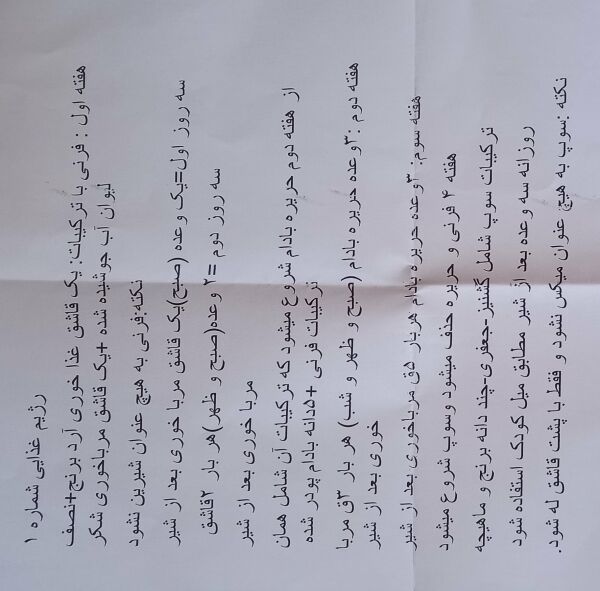 رژیم غذایی شماره ۱
هفته اول : فرنی با ترکیبات: یک قاشق غذا خوری آرد برنج+نصف
لیوان آب جوشیده شده +یک قاشق مرباخوری شکر
نکته:فرنی به هیچ عنوان شیرین نشود
سه روز اول=یک وعده (صبح)یک قاشق مربا خوری بعد از شیر
سه روز دوم =۲ وعده(صبح و ظهر)هر بار ۲قاشق
مربا خوری بعد از شیر
از هفته دوم حریره بادام شروع میشود که ترکیبات آن شامل همان
ترکیبات فرنی +۵دانه بادام پودر شده
هفته دوم :۳وعده حریره بادام (صبح و ظهر و شب) هر بار ۳ق مربا
خوری بعد از شیر
هفته سوم: ۳وعده حریره بادام هربار ۵ق مرباخوری بعد از شیر
هفته ۴ فرنی و حریره حذف میشود وسوپ شروع میشود
ترکیبات سوپ شامل گشنیز-جعفری-چند دانه برنج و ماهیچه
روزانه سه وعده بعد از شیر مطابق میل کودک استفاده شود
نکته :سوپ به هیچ عنوان میکس نشود و فقط با پشت قاشق له شود.